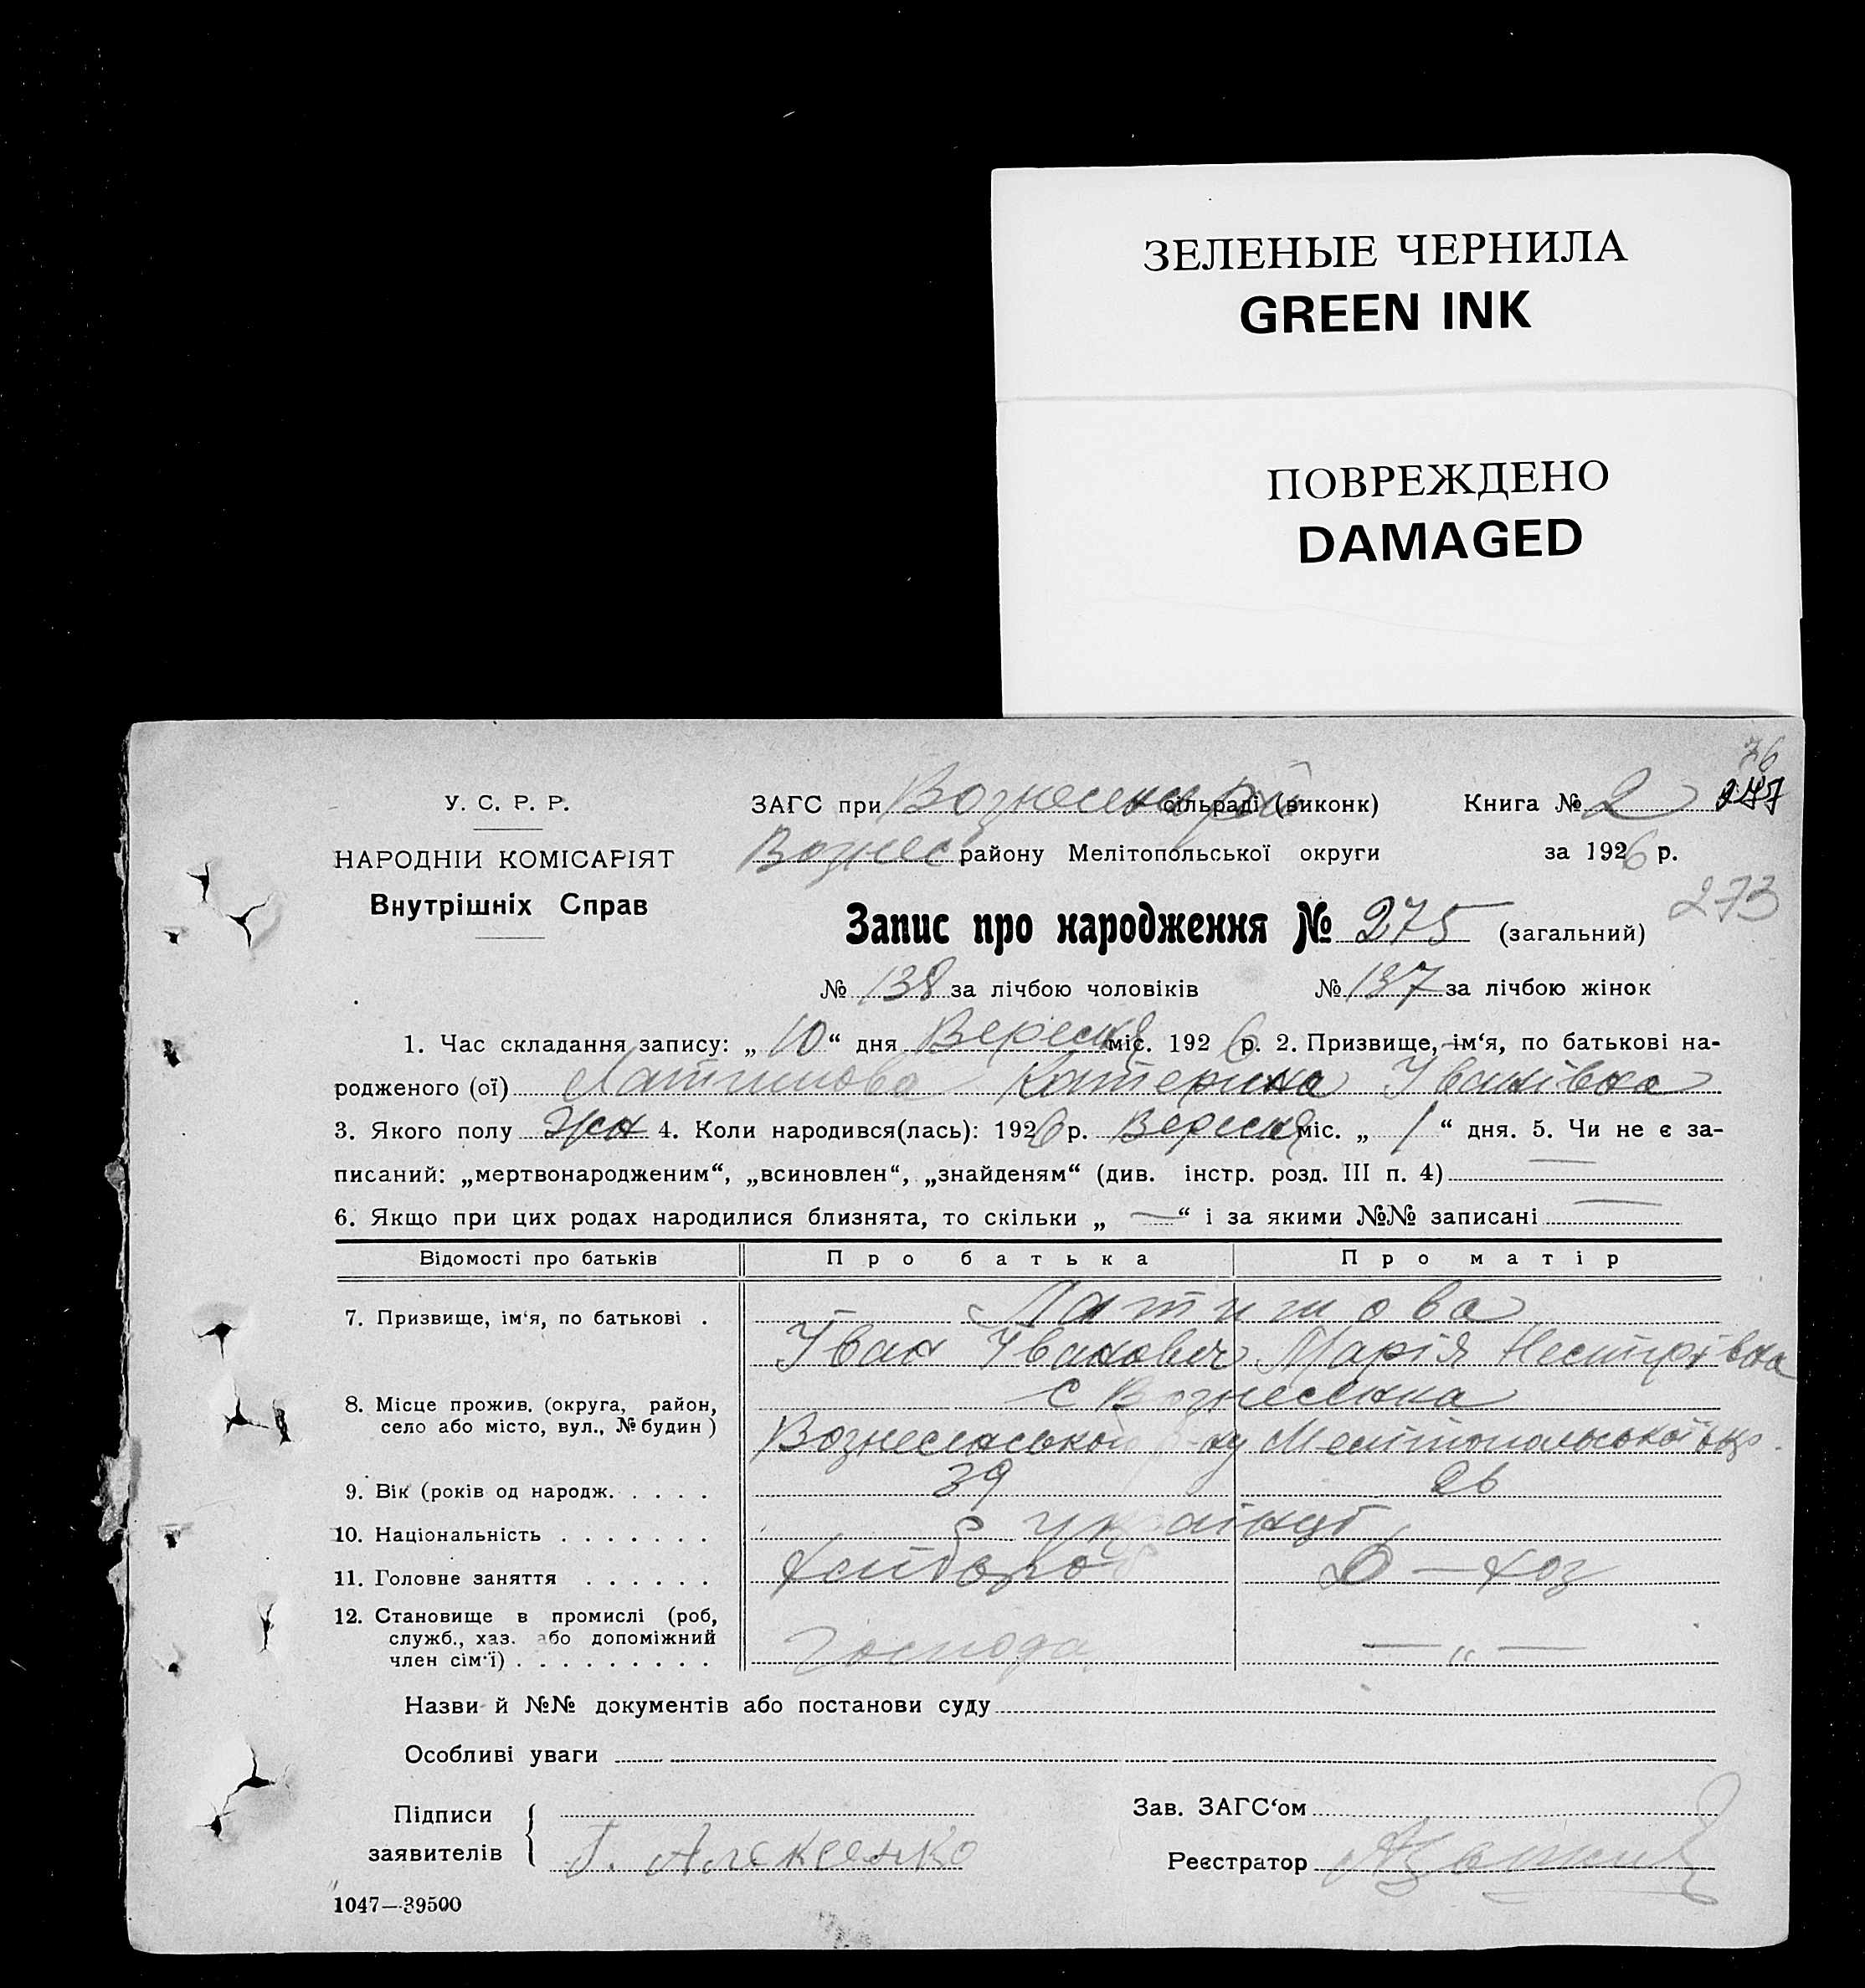 ЗЕЛЕНЫЕ ЧЕРНИЛА
GREEN INK
ПОВРЕЖДЕНО
DAMAGED
76
277
У. С. Р. Р.
НАРОДНІЙ КОМІСАРІЯТ
Внутрішніх Справ
ЗАГС при сільраді (виконк) Книга № 2
Вознес району Мелітопольської округи за 1926 р.
273
Запис про народження № 275 (загальний)
№ 138 за лічбою чоловіків № 137 за лічбою жінок
1. Час складання запису: „ 10 “ дня Вересня міс. 1926 р. 2. Призвище, ім‘я, по батькові на-
родженого (ої) Латишова Катерина Іванівна
3. Якого полу жен 4. Коли народився(лась): 1926 р. Вересня міс. „ 1 “ дня. 5. Чи не є за-
писаний: „мертвонародженим“, „всиновлен“, „знайденям“ (див. інстр. розд. III п. 4) —
6. Якщо при цих родах народилися близнята, то скільки „ — “ і за якими №№ записані —
Відомості про батьків Про батька Про матір
7. Призвище, ім‘я, по батькові . Латишова
Іван Іванович Марія Нестірівна
8. Місце прожив. (округа, район, село або місто, вул., № будин ) с Вознесенка
Вознесенського Мелітопольської окр.
9. Вік (років од народж. . . . . 39 26
10. Національність . . . . . . . українці
11. Головне заняття . . . . . . Хлібороб Д — хоз
12. Становище в промислі (роб,
служб., хаз. або допоміжний
член сім‘ї) . . . . . . . . . Господа — „ —
Назви й №№ документів або постанови суду
Особливі уваги
Підписи
заявителів Г. Алексенко
Зав. ЗАГС‘ом
Реєстратор
1047—39500